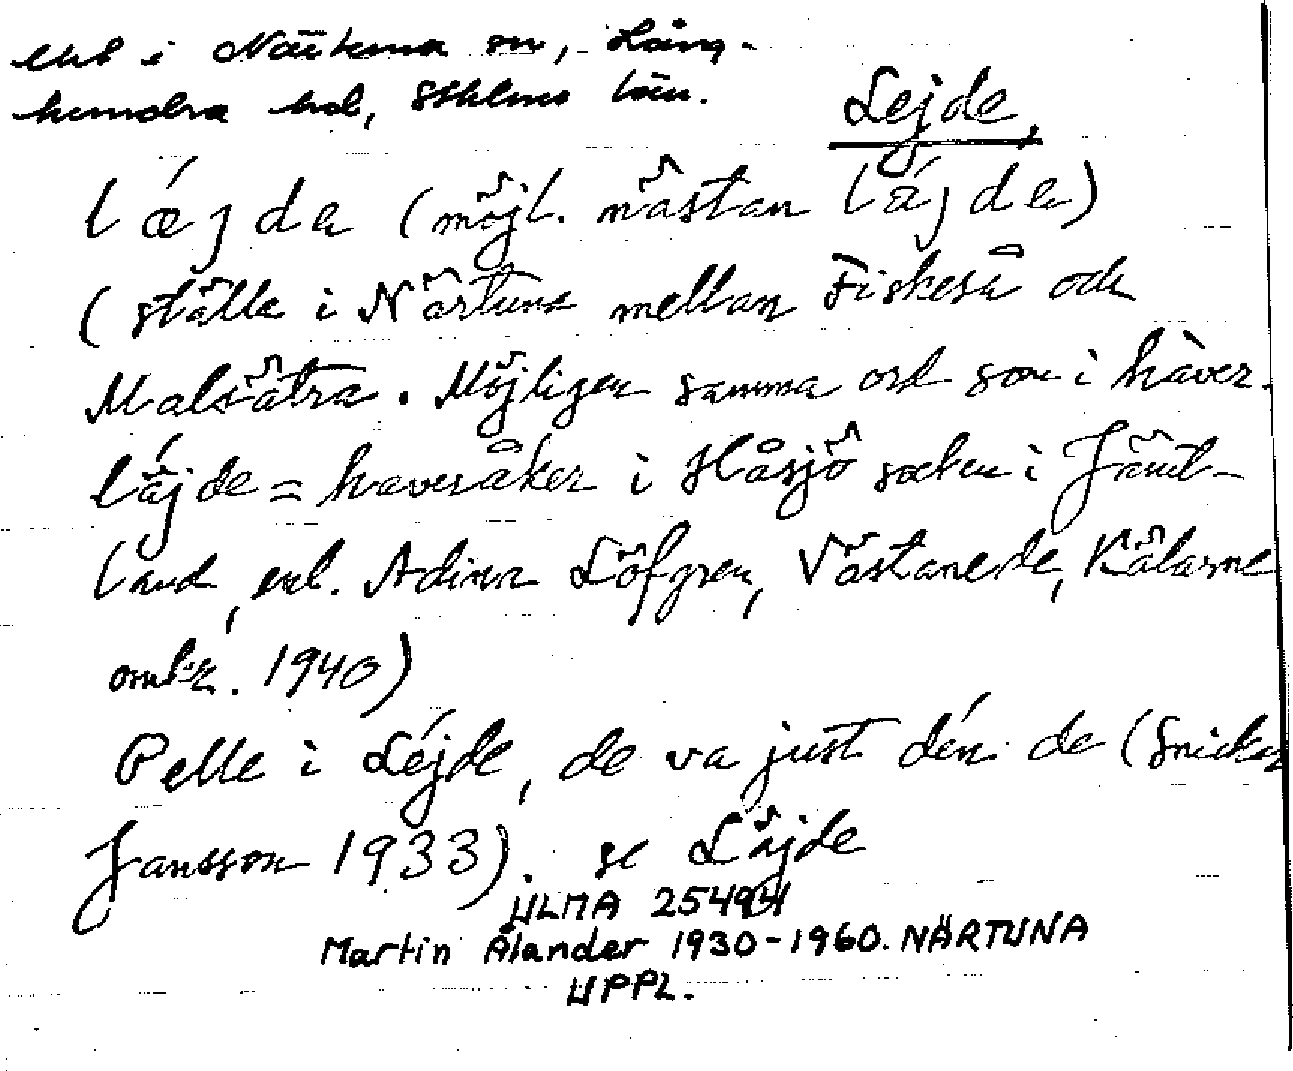 i Närtuna sn, Lång-
hundra hd, Sthlms län.
Lejde,
lǽjda (möjl. nästan lä́jda)
(ställe i Närtuna mellan Fiskeså och
Malsätra. Möjligen samma ord som i hàver-
lä́jde = haveråker i Håsjö socken i Jämt-
land, enl. Löfgren, Västanede, Kälarne
omkr. 1940)
Pelle i Léjde, de va just dén de (Snickar
Jansson 1933). se Läjde
ULMA 25494
Martin Ålander 1930-1960. NÄRTUNA
UPPL.